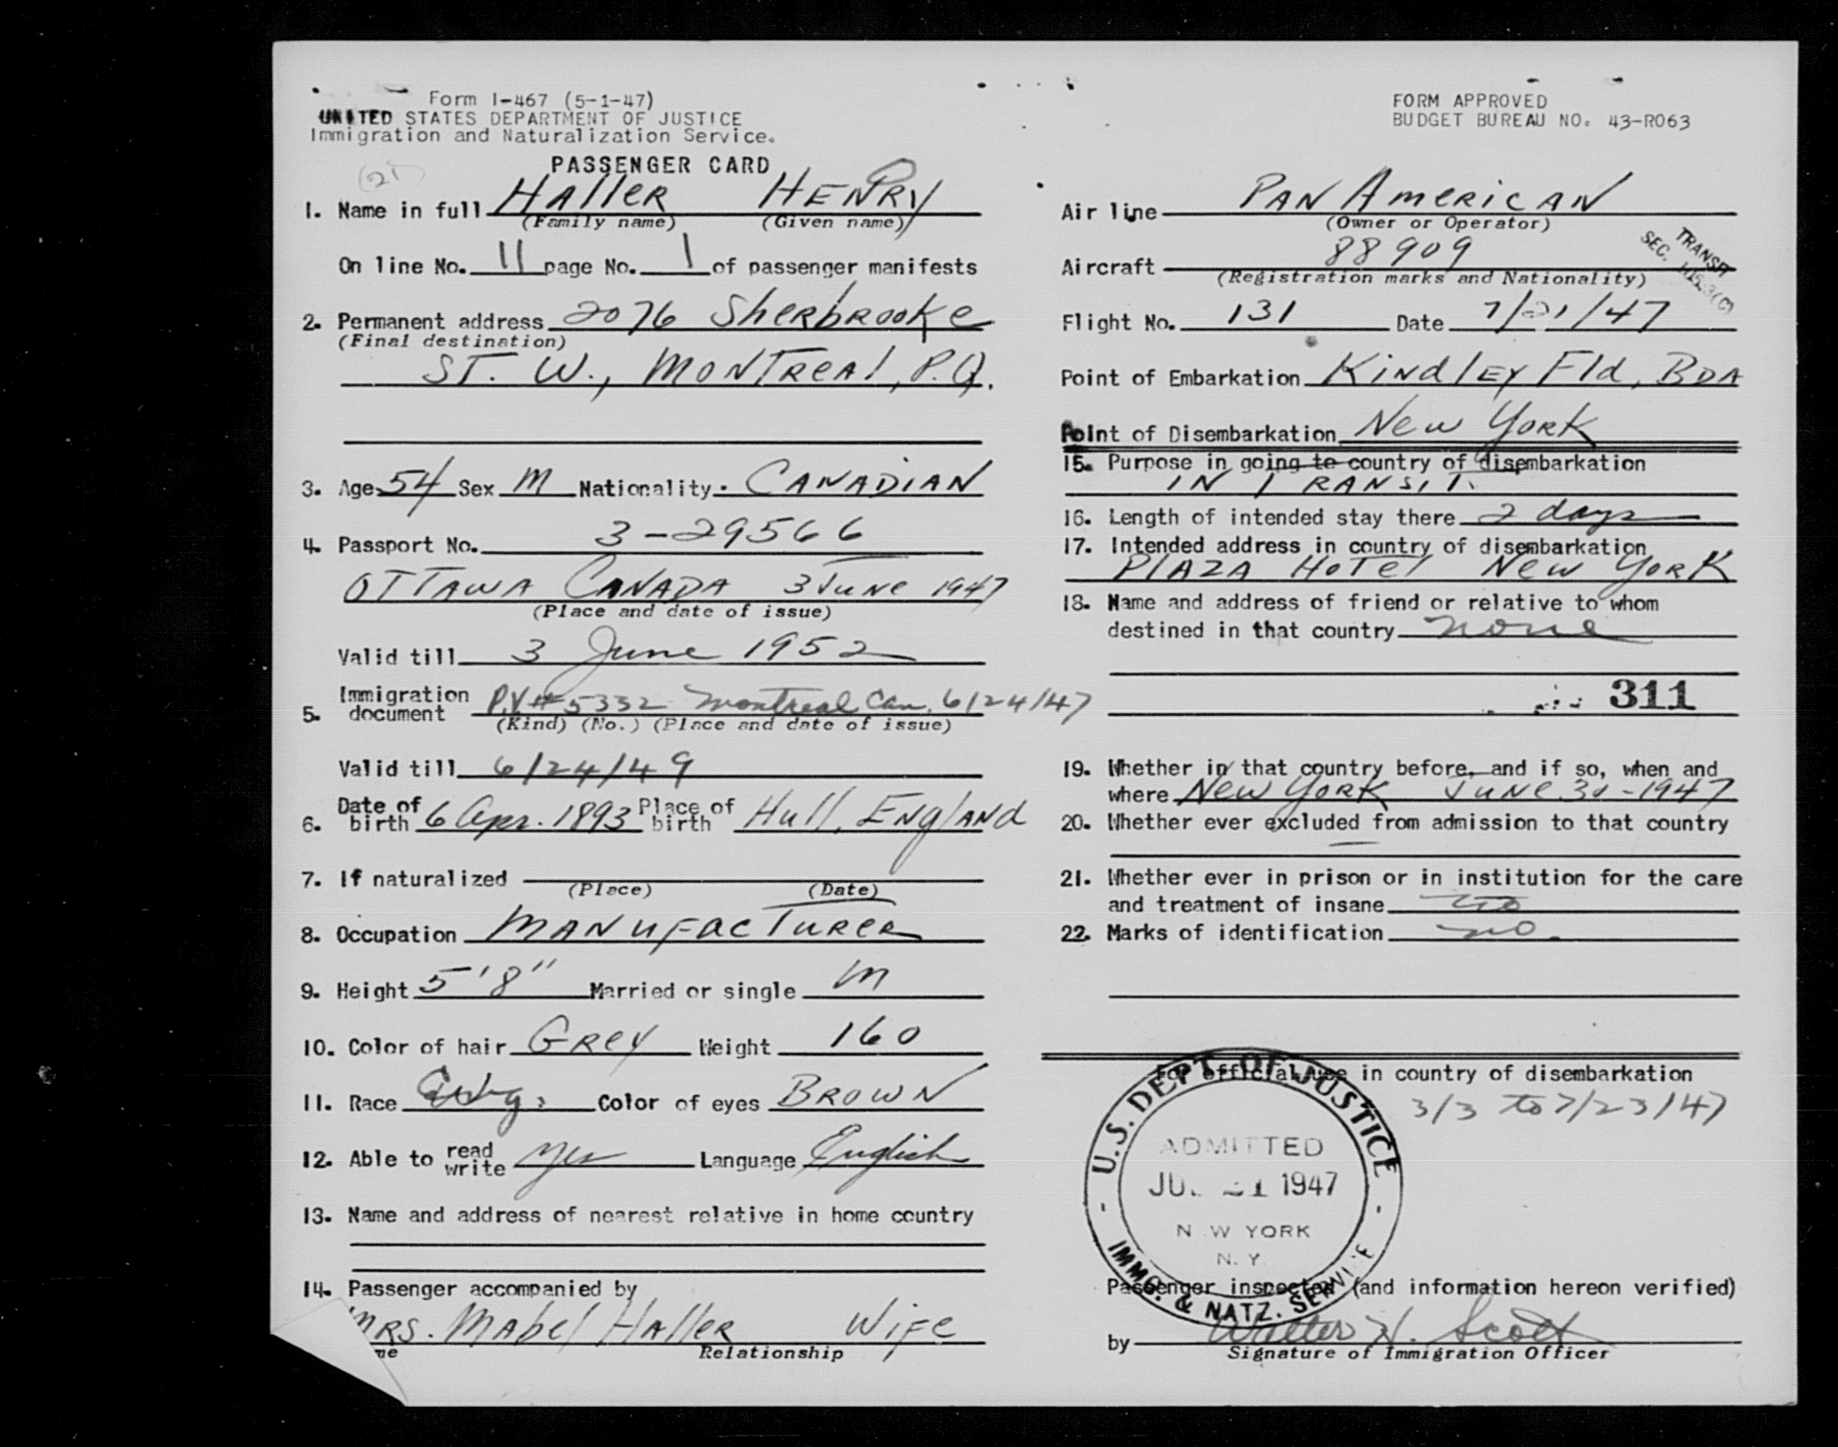 Form I-467 (5-1-47)
UNITED STATES DEPARTMENT OF JUSTICE
Immigration and Naturalization Service.
PASSENGER CARD
1. Name in full Haller HENRY
(Family name) (Given name)
On line No. 11 page No. 1 of passenger manifests
2. Permanent address 2076 Sherbrooke
(Final destination)
ST. W., MONTREAL, P.Q.
3. Age 54 Sex M Nationality. CANADIAN
4. Passport No. 3-29566
OTTAWA CANADA 3 JUNE 1947
(Place and date of issue)
Valid till 3 June 1952
5. Immigration document P.V# 5332 Montreal Can. 6/24/47
(Kind) (No.) (Place and date of issue)
Valid till 6/24/49
6. Date of birth 6 Apr. 1893 Place of birth Hull, ENGLAND
7. If naturalized
(Place) (Date)
8. Occupation MANUFACTURER
9. Height 5'8" Married or single M
10. Color of hair GREY Weight 160
11. Race Color of eyes BROWN
12. Able to read write yes Language English
13. Name and address of nearest relative in home country
14. Passenger accompanied by
MRS. Mabel Haller Wife
me Relationship
FORM APPROVED
BUDGET BUREAU NO. 43-R063
Air line PAN AMERICAN
(Owner or Operator)
TRANSIT
SEC.
Aircraft 88909
(Registration marks and Nationality)
Flight No. 131 Date 7/21/47
Point of Embarkation Kindley Fld, BDA
Point of Disembarkation New York
15. Purpose in going to country of disembarkation
IN TRANSIT.
16. Length of intended stay there 2 days
17. Intended address in country of disembarkation
PLAZA HOTEL NEW YORK
18. Name and address of friend or relative to whom
destined in that country none
311
19. Whether in that country before, and if so, when and
where New York JUNE -1947
20. Whether ever excluded from admission to that country
21. Whether ever in prison or in institution for the care
and treatment of insane no
22. Marks of identification no.
For official use in country of disembarkation
3/3 to 7/23/47
U.S. DEPT. OF JUSTICE
ADMITTED
JUL 21 1947
NEW YORK
N.Y.
IMMG. & NATZ. SERVICE
Passenger inspected (and information hereon verified)
by Walter H. Scott
Signature of Immigration Officer